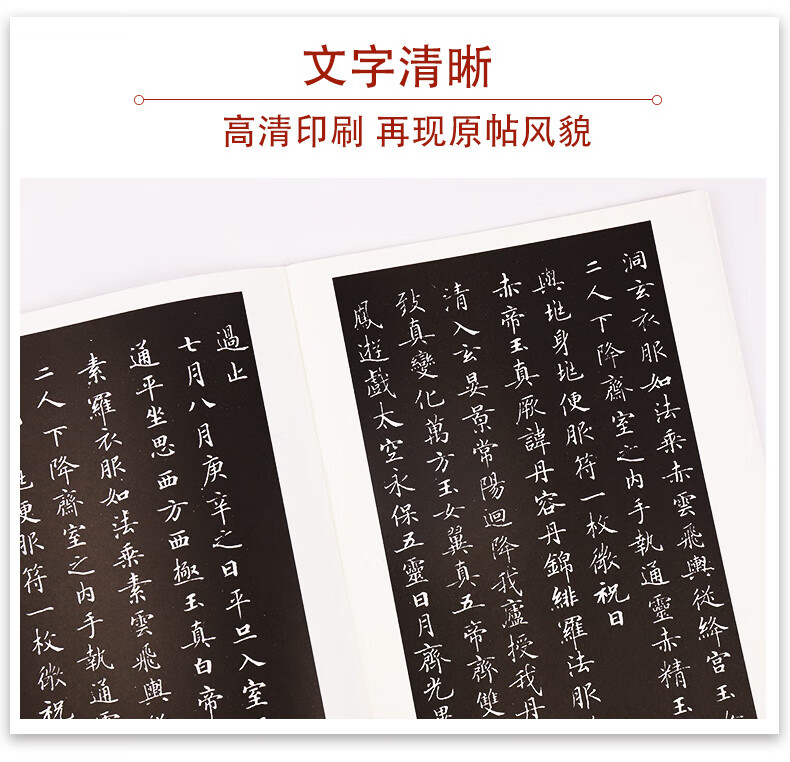 文字清晰
高清印刷 再现原帖风貌
洞玄衣服如法乘赤雲飛輿從絳宮玉
二人下降齋室之内手執通靈赤精玉
與兆身兆便服符一枚微祝曰
赤帝玉真厥諱丹容丹錦緋羅法服
清入玄晏景常陽迴降我廬授我丹
致真變化萬方玉女翼真五帝齊雙
鳳遊戲太空永保五靈日月齊光
過止
七月八月庚辛之日平旦入室
通平坐思西方西極玉真白帝
素羅衣服如法乘素雲飛輿
二人下降齋室之内手執通
便服符一枚微祝